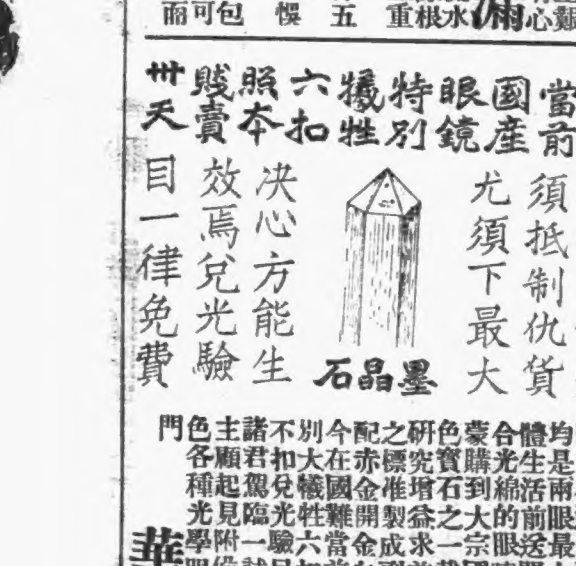 心
滿
水
根
重
五
悞
包
可
雨
當前
國產
眼鏡
特別
犧牲
六扣
照本
賤賣
卅天
須抵制仇貨
尤須下最大
决心方能生
效焉兌光驗
目一律免費
墨晶石
均是兩眼最
體生活前送
合光綿的眼
蒙購到大宗
色寶石之一
研究增益求
之標准製成
配赤金開金
今在國難當
別大犧牲六
不扣兌光驗
諸君駕臨一
主顧起見附
色各種光學
門
華